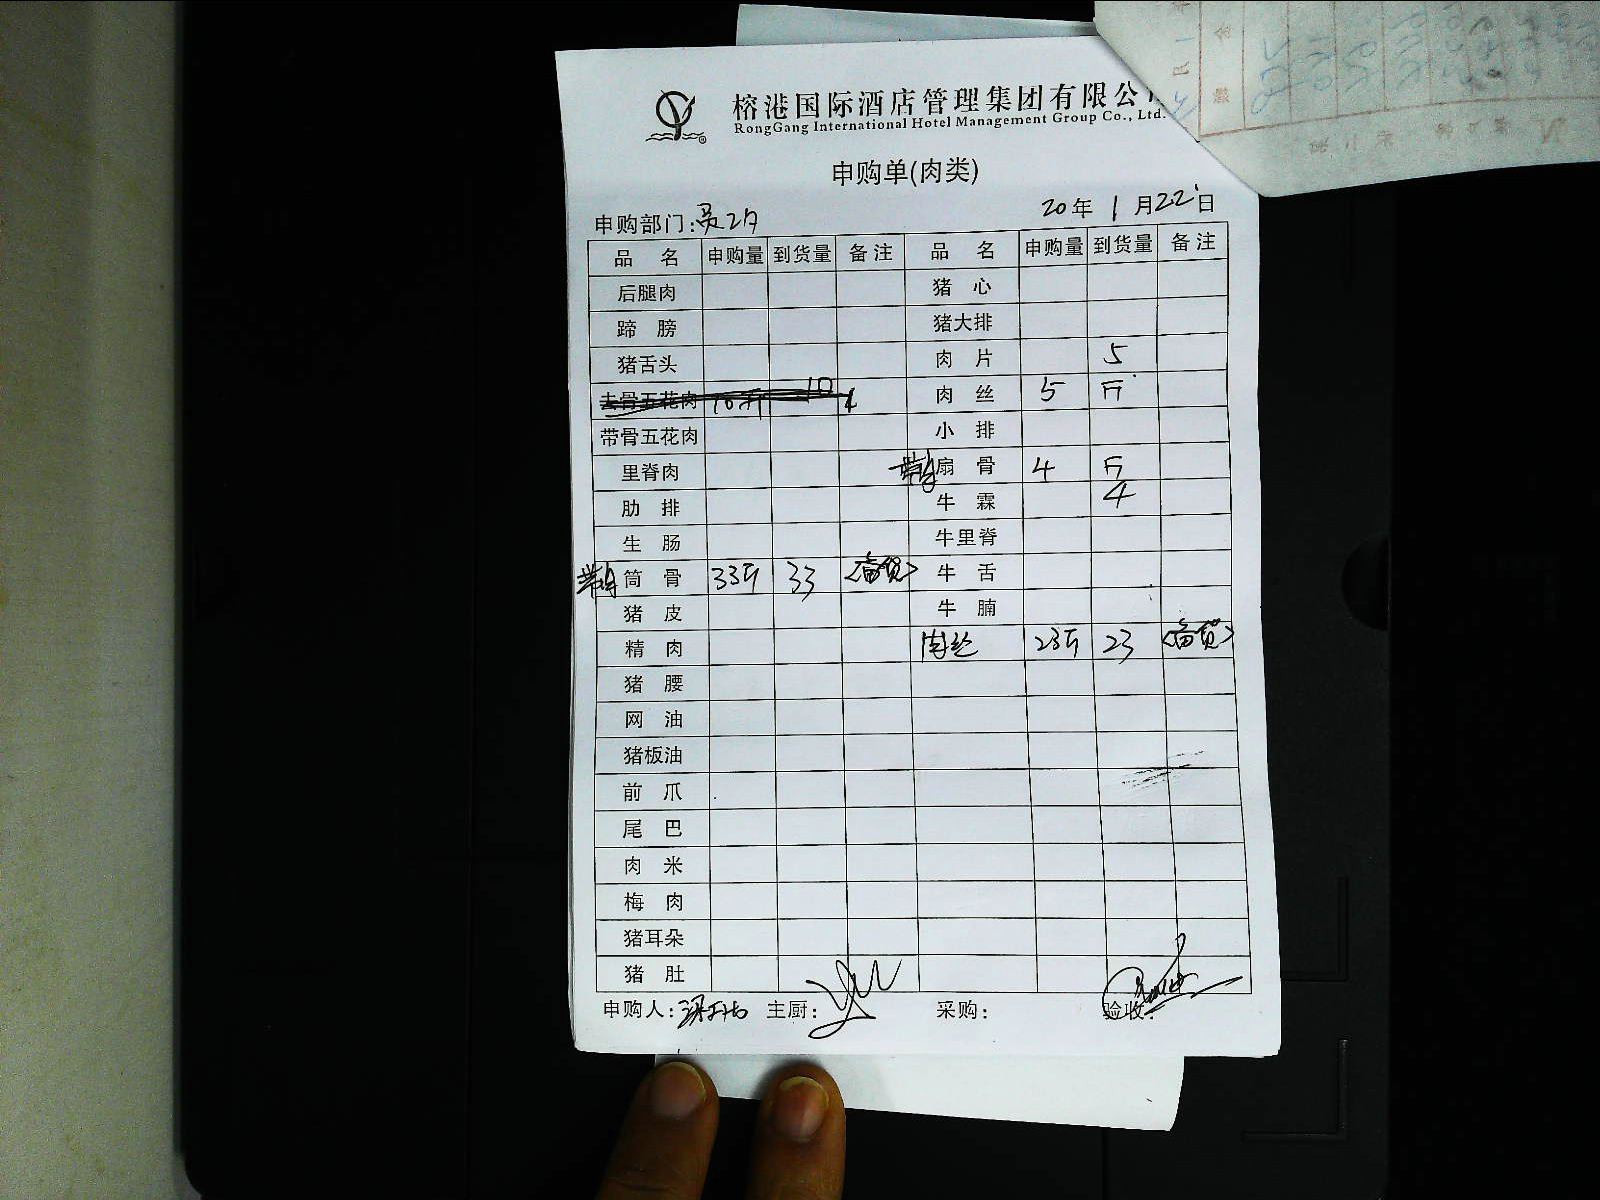 榕港国际酒店管理集团有限公
RongGang International Hotel Management Group Co., Ltd.
申购单(肉类)
申购部门:
20年 1月22日
品 名 申购量 到货量 备注 品 名 申购量 到货量 备注
后腿肉 猪 心
蹄 膀 猪大排
猪舌头 肉 片 5
去骨五花肉 10斤 10 肉 丝 5 斤
带骨五花肉 小 排
里脊肉 扇 骨 4 斤
肋 排 牛 霖 4
生 肠 牛里脊
筒 骨 33斤 33 <备货> 牛 舌
猪 皮 牛 腩
精 肉 肉丝 23斤 23 <备货>
猪 腰
网 油
猪板油
前 爪
尾 巴
肉 米
梅 肉
猪耳朵
猪 肚
申购人: 主厨: 采购: 验收: